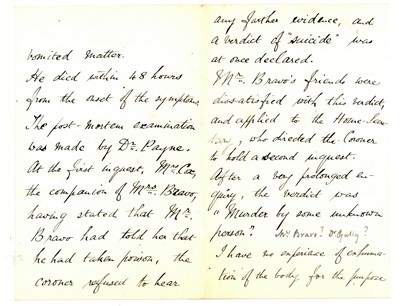 vomited matter.
He died within 48 hours
from the onset of the symptoms.
The post-mortem examination
was made by Dr. Payne.
At the first inquest, Mrs. Cox,
the companion of Mrs. Bravo,
having stated that Mr.
Bravo had told her that
he had taken poison, the
coroner refused to hear
any further evidence, and
a verdict of "suicide" was
at once declared.
Mr. Bravo's friends were
dissatisfied with this verdict,
and applied to the Home-Secre-
tary, who directed the Coroner
to hold a second inquest.
After a very prolonged en-
quiry, the verdict was
"Murder by some unknown
person" Mrs Bravo? Dr Gully?
I have no experience of exhuma-
tion of the body for the purpose